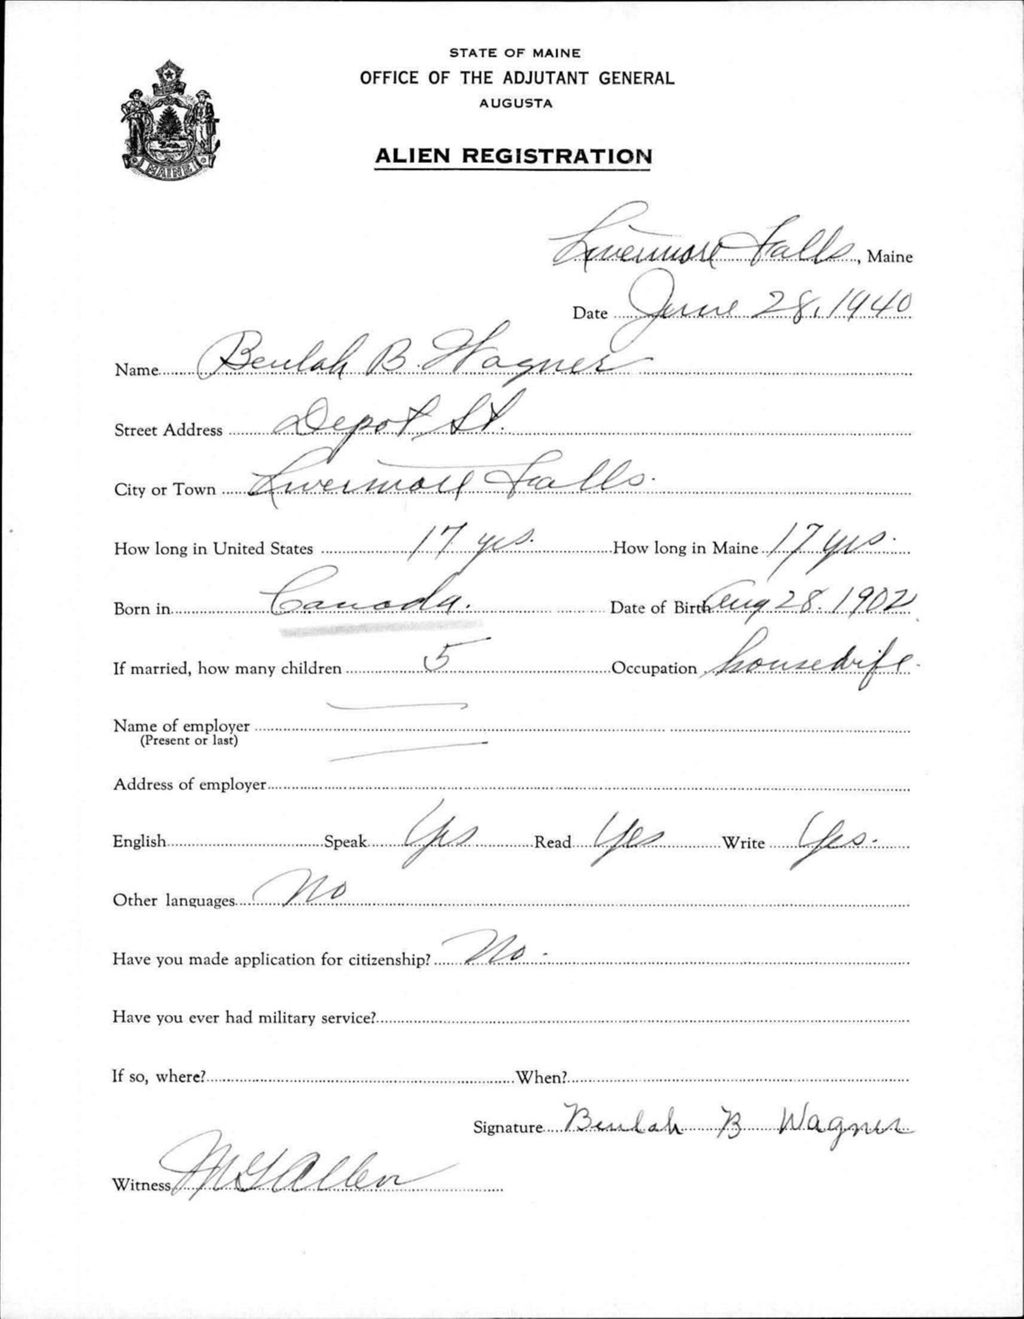 STATE OF MAINE
OFFICE OF THE ADJUTANT GENERAL
AUGUSTA
ALIEN REGISTRATION
MAINE
Livermore Falls, Maine
Date June 28, 1940
Name Beulah B. Wagner
Street Address Depot St.
City or Town Livermore Falls.
How long in United States 17 yrs. How long in Maine 17 yrs.
Born in Canada. Date of Birth Aug 28. 1902
If married, how many children 5 Occupation housewife.
Name of employer
(Present or last)
Address of employer
English Speak Yes Read Yes Write Yes.
Other languages No
Have you made application for citizenship? No.
Have you ever had military service?
If so, where? When?
Signature Beulah B Wagner
Witness Allen